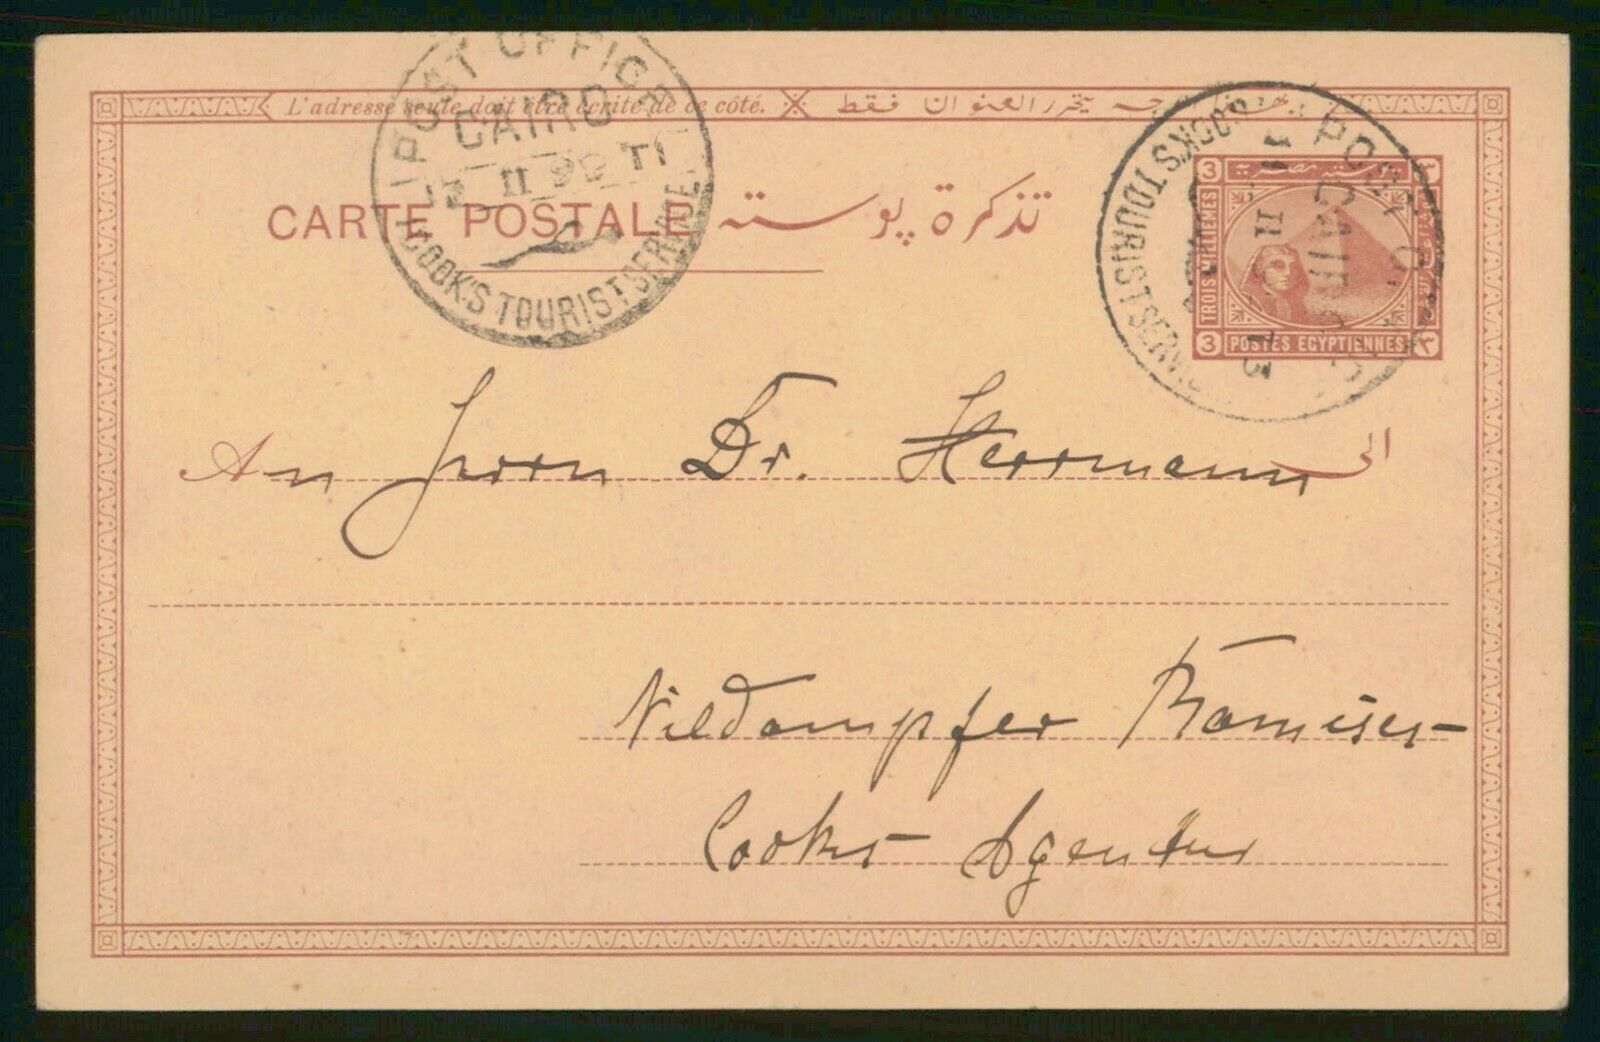 L'adresse seule doit être écrite de ce côté. هذا الوجه يتحرر العنوان فقط
POST OFFICE
CAIRO
II 99 T1
COOK'S TOURIST SERVICE
POST OFFICE
CAIRO
II T3
COOK'S TOURIST SERVICE
CARTE POSTALE تذكرة پوسته
3
TROIS MILLIEMES
3 POSTES EGYPTIENNES ٣
An Herrn Dr. Herrmann الى
Nildampfer Ramses-
Cooks Agentur